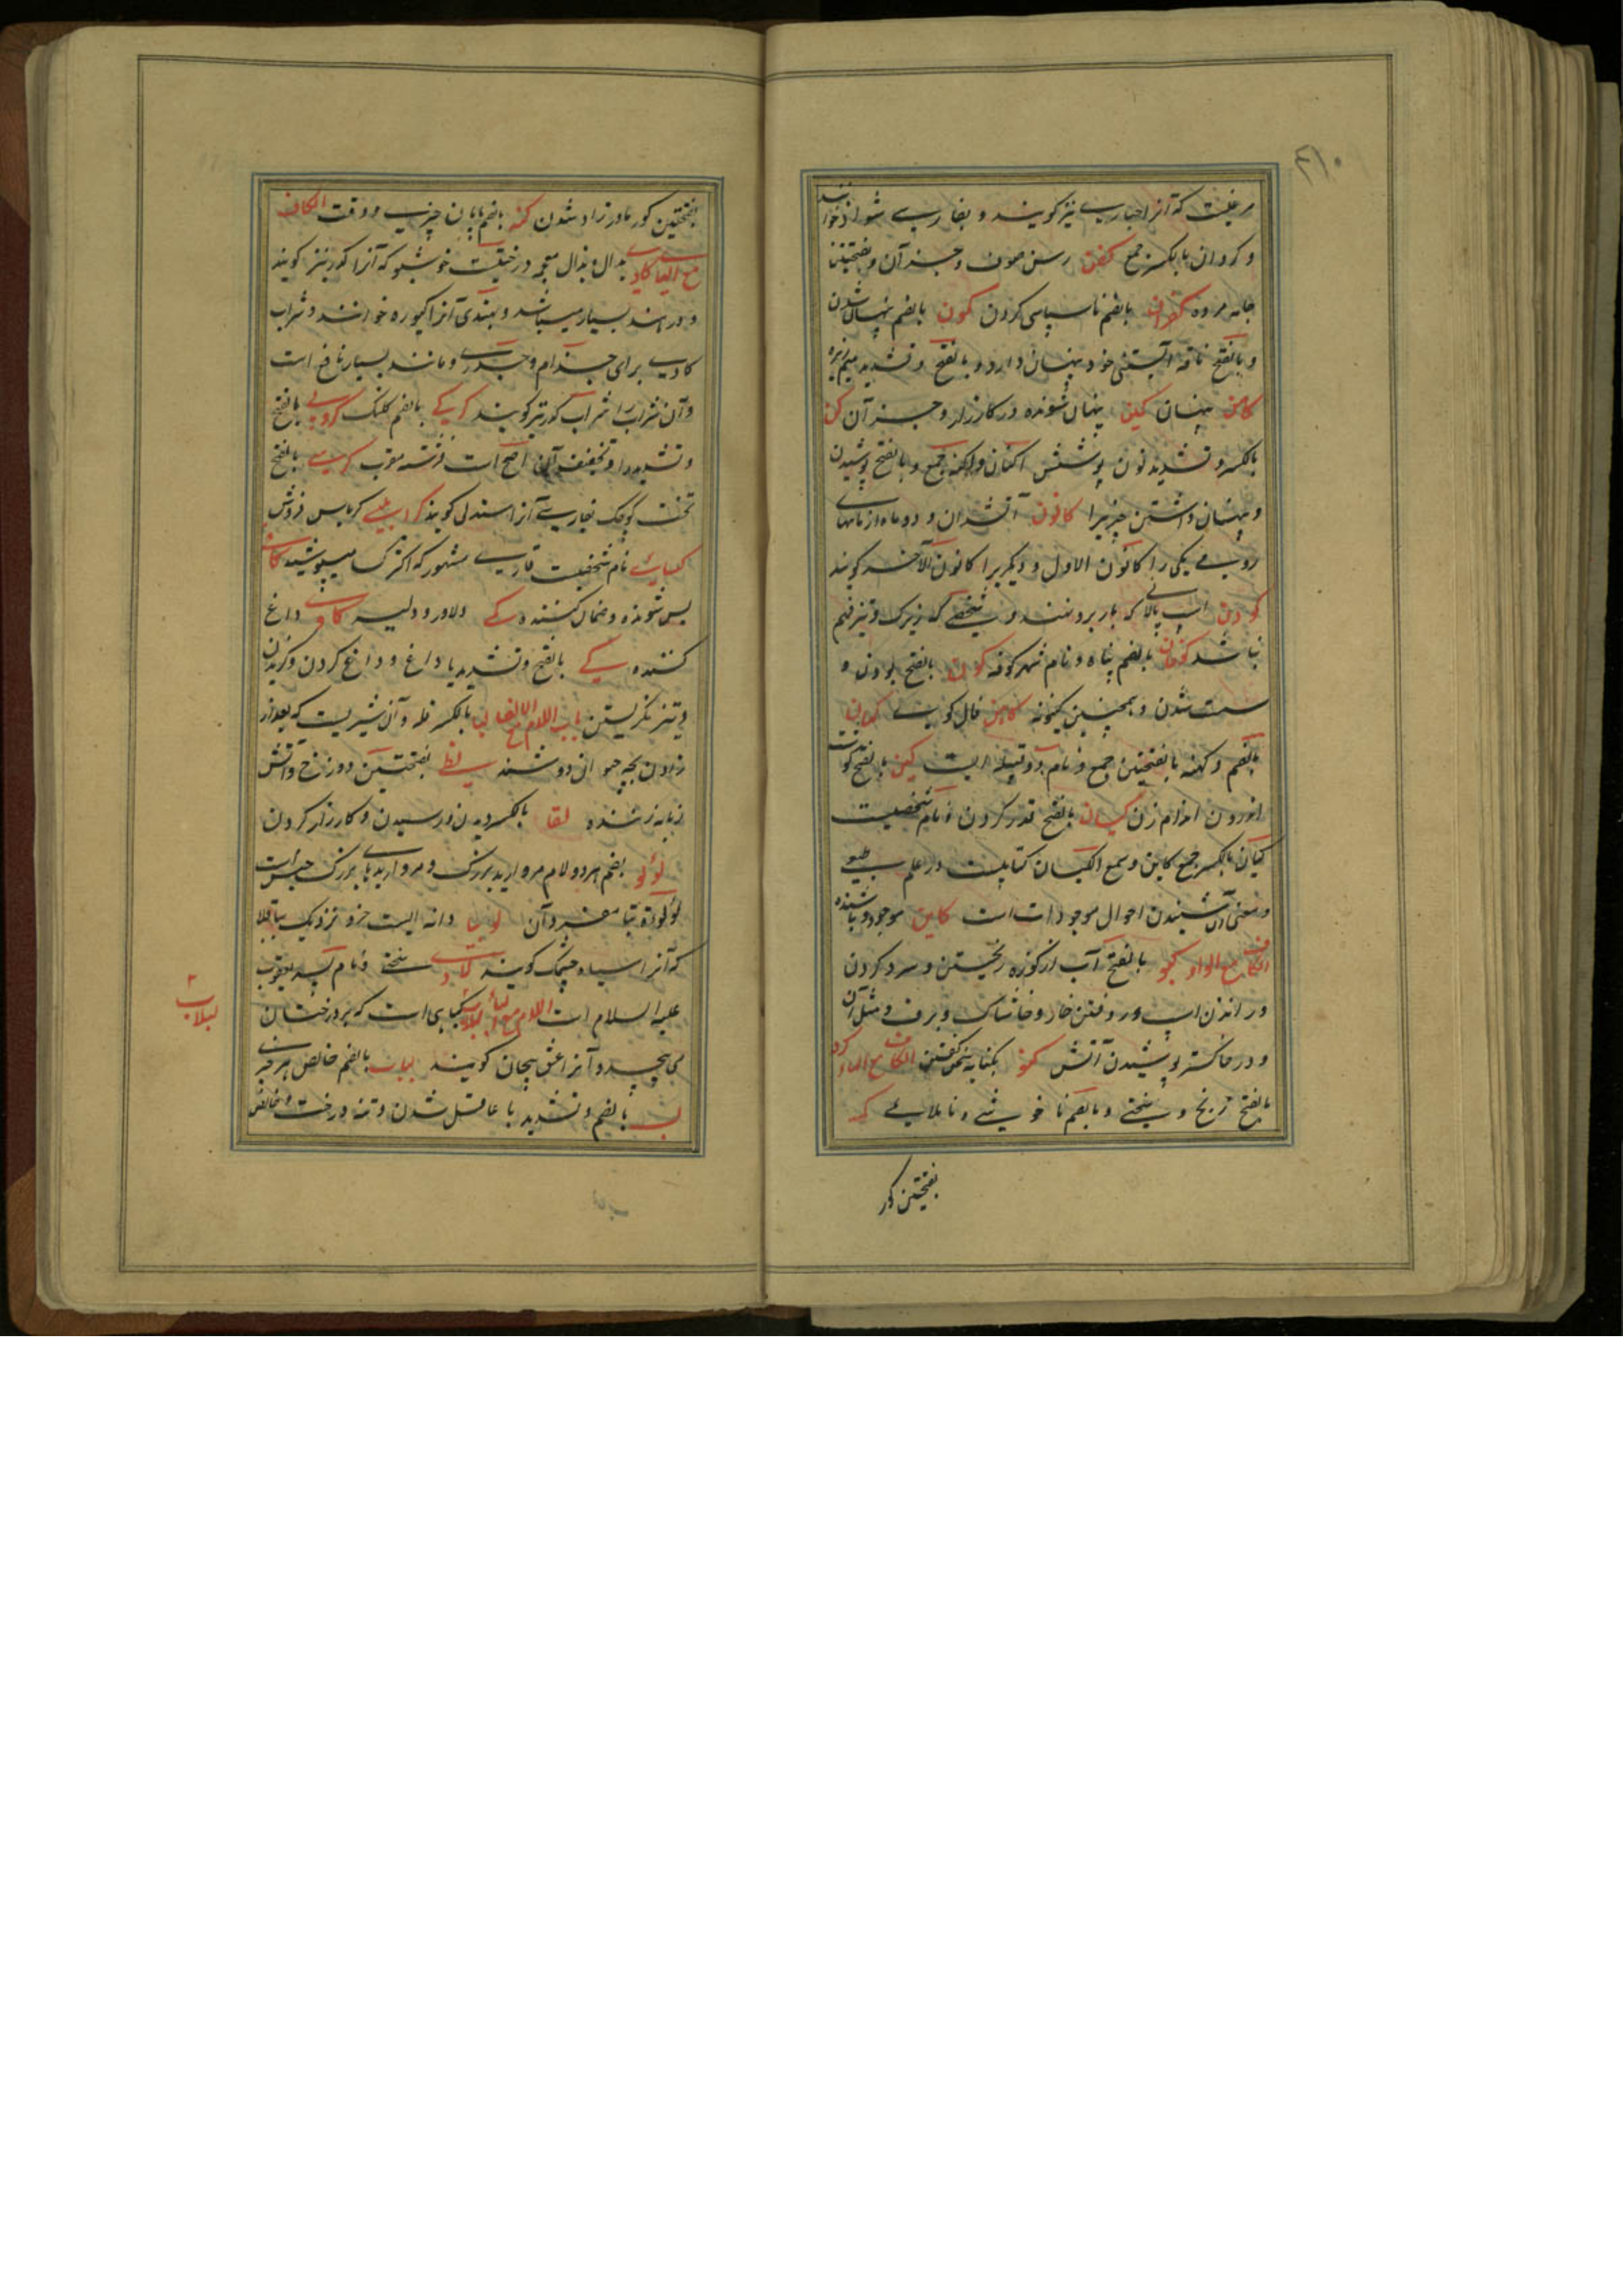 ۴۱۰
مرغیست که آنرا حباری نیز گویند و بفارسی شوات خوانند
و کروان بالکسر جمع کفن رسن صوف و جز آن و بفتحتین
جامه مرده کفران بالضم ناسپاسی کردن کمون بالضم پنهان شدن
و بالفتح ناقه آبستنی خود پنهان دارد و بالفتح و تشدید میم زیره
کامن پنهان کمین پنهان شونده در کارزار و جز آن کن
بالکسر و تشدید نون پوشش اکنان و اکنه جمع و بالفتح پوشیدن
و پنهان داشتن چیزیرا کانون آتشدان و دو ماه از ماههای
رومی یکی را کانون الاول و دیگریرا کانون الآخر گویند
کودن اسپ پالانی که بار برو نهند و شخصی که زیرک و تیزفهم
نباشد کوفان بالضم پناه و نام شهر کوفه کون بالفتح بودن و
هست شدن و همچنین کینونه کاهن فال گوی کهان
بالضم و کهنه بفتحتین جمع و نام دو قبیله است کین بالفتح گوشت
اندرون اندام زن کیسان بالفتح قدر کردن و نام شخصیست
کیان بالکسر جمع کاین و سمع الکیان کتابیست در علم طبیعی
و معنی آن شنیدن احوال موجودات است کاین موجود و باشنده
الکاف مع الواو کبو بالفتح آب از کوزه ریختن و سرد کردن
و راندن اسپ و روفتن خار و خاشاک و برف و مثل آن
و در خاکستر پوشیدن آتش کنو بکنایه سخن گفتن الکاف مع الهاء کره
بالفتح رنج و سختی و بالضم ناخوشی و ناملایمی کمه
بفتحتین کور
بفتحتین کور مادرزاد شدن کنه بالضم پایان چیزی و وقت الکاف
مع الیاء کادی بدال و بذال معجمه درختیست خوشبو که آنرا کدر نیز گویند
و در هند بسیار میباشد و بهندی آنرا کیوره خوانند و شراب
کادی برای جذام و جدری و مانند بسیار نافع است
و آن شراب را شراب کدر نیز گویند کرکی بالضم کلنگ کروبی بالفتح
و تشدید را و تخفیف آن اصح است فرشته مقرب کرسی بالفتح
تخت کوچک بفارسی آنرا صندلی گویند کرابیسی کرباس فروش
کسائی نام شخصیست قاری مشهور که اکثر کسا میپوشید کافی
بس شونده و ضمان کننده کمی دلاور و دلیر کاوی داغ
کننده کی بالفتح و تشدید یا داغ و داغ کردن و گزیدن
و تیز نگریستن باب اللام مع الالف لبا بالکسر فله و آن شیریست که بعد از
زادن بچه حیوانی دوشند لظی بفتحتین دوزخ و آتش
زبانه زننده لقا بالکسر دیدن و رسیدن و کارزار کردن
لؤلؤ بضم هر دو لام مروارید بزرگ و مرواریدهای بزرگ جنس است
لؤلؤة بتا مفرد آن لوبیا دانه ایست خرد نزدیک بباقلا
که آنرا سیاه چشمک گویند لاوی سختی و نام پسر یعقوب
علیه السلام است اللام مع الباء لبلاب گیاهی است که بر درختان
می پیچد و آنرا عشق پیچان گویند لباب بالضم خالص هر چیزی
لب بالضم و تشدید با عاقل شدن و تنه درخت و خالص
لبلاب